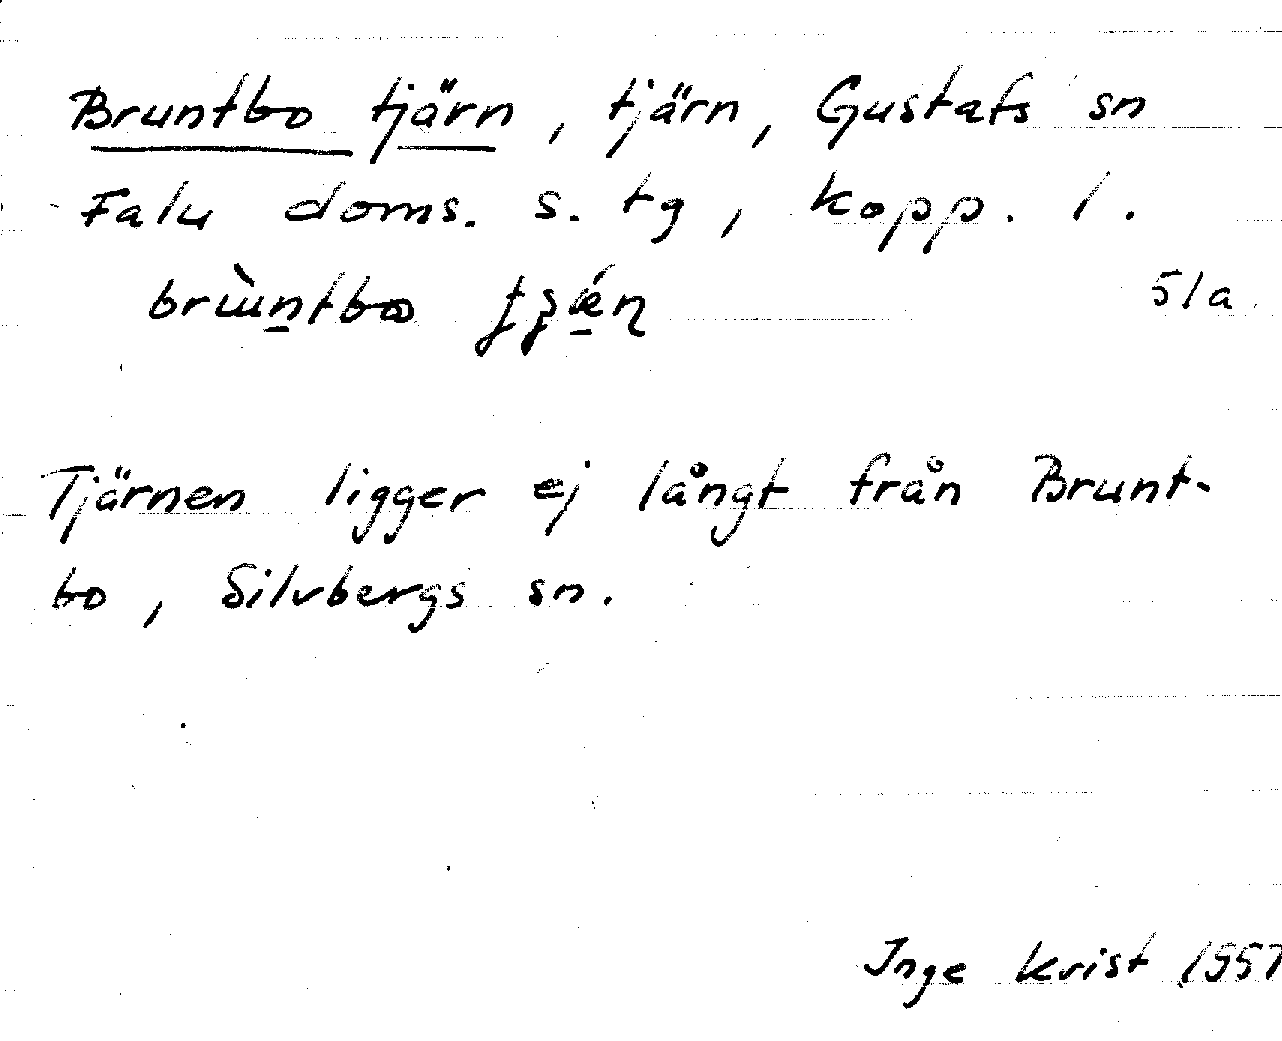 Bruntbo tjärn, tjärn, Gustafs sn
Falu doms. s. tg, Kopp. l.
51a
Tjärnen ligger ej långt från Brunt-
bo, Silvbergs sn.
Inge Kvist 1957